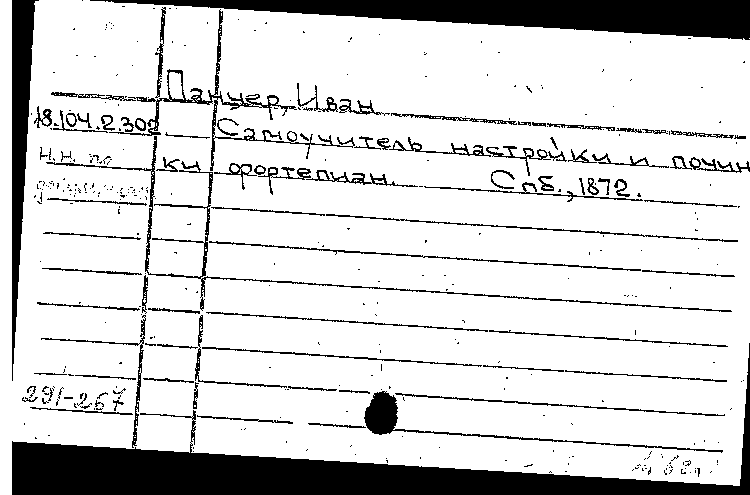 Панцер, Иван
18.104.2.302 Самоучитель настройки и почин
Н.Н. по ки фортепиан. Спб., 1872.
291-267